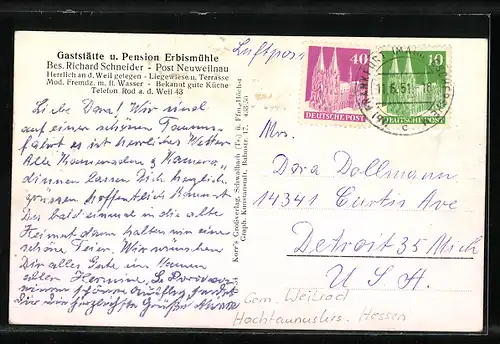 Gaststätte u. Pension Erbismühle
Bes. Richard Schneider - Post Neuweilnau
Herrlich an d. Weil gelegen - Liegewiese u. Terrasse
Mod. Fremdz. m. fl. Wasser - Bekannt gute Küche
Telefon Rod a. d. Weil 48
Luftpost
Liebe Dora! Wir sind
auf einer schönen Taunus-
fahrt es ist herrliches Wetter
Alle Kameraden & Kamera-
dinnen lassen Dich herzliche
grüssen hoffentlich kannst
Du bald einmal in die alte
Heimat dann halten wir eine
schöne Feier. Wir wünschen
Dir alles Gute im Namen
aller
einen schönen Ausflug
die herzlichsten Grüße
Korr's Großverlag, Schwalbach (Ts.) ü. Ffm.-Höchst
Graph. Kunstanstalt, Rehnstr. 17.
40
DEUTSCHE POST
10
DEUTSCHE POST
11.6.51
c
Mrs.
Dora Dollmann
14341 Curtis Ave
Detroit 35 Mich
U.S.A.
Gem. Weilrod
Hochtaunuskrs. Hessen